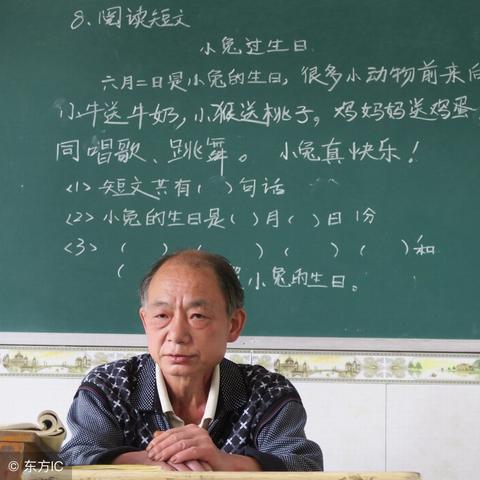 8、阅读短文
小兔过生日
六月二日是小兔的生日,很多小动物前来
小牛送牛奶,小猴送桃子,鸡妈妈送鸡蛋
同唱歌、跳舞。 小兔真快乐!
<1> 短文共有( )句话
<2> 小兔的生日是( )月( )日
<3> ( ) ( ) ( ) ( )和
( 小兔的生日。
© 东方IC